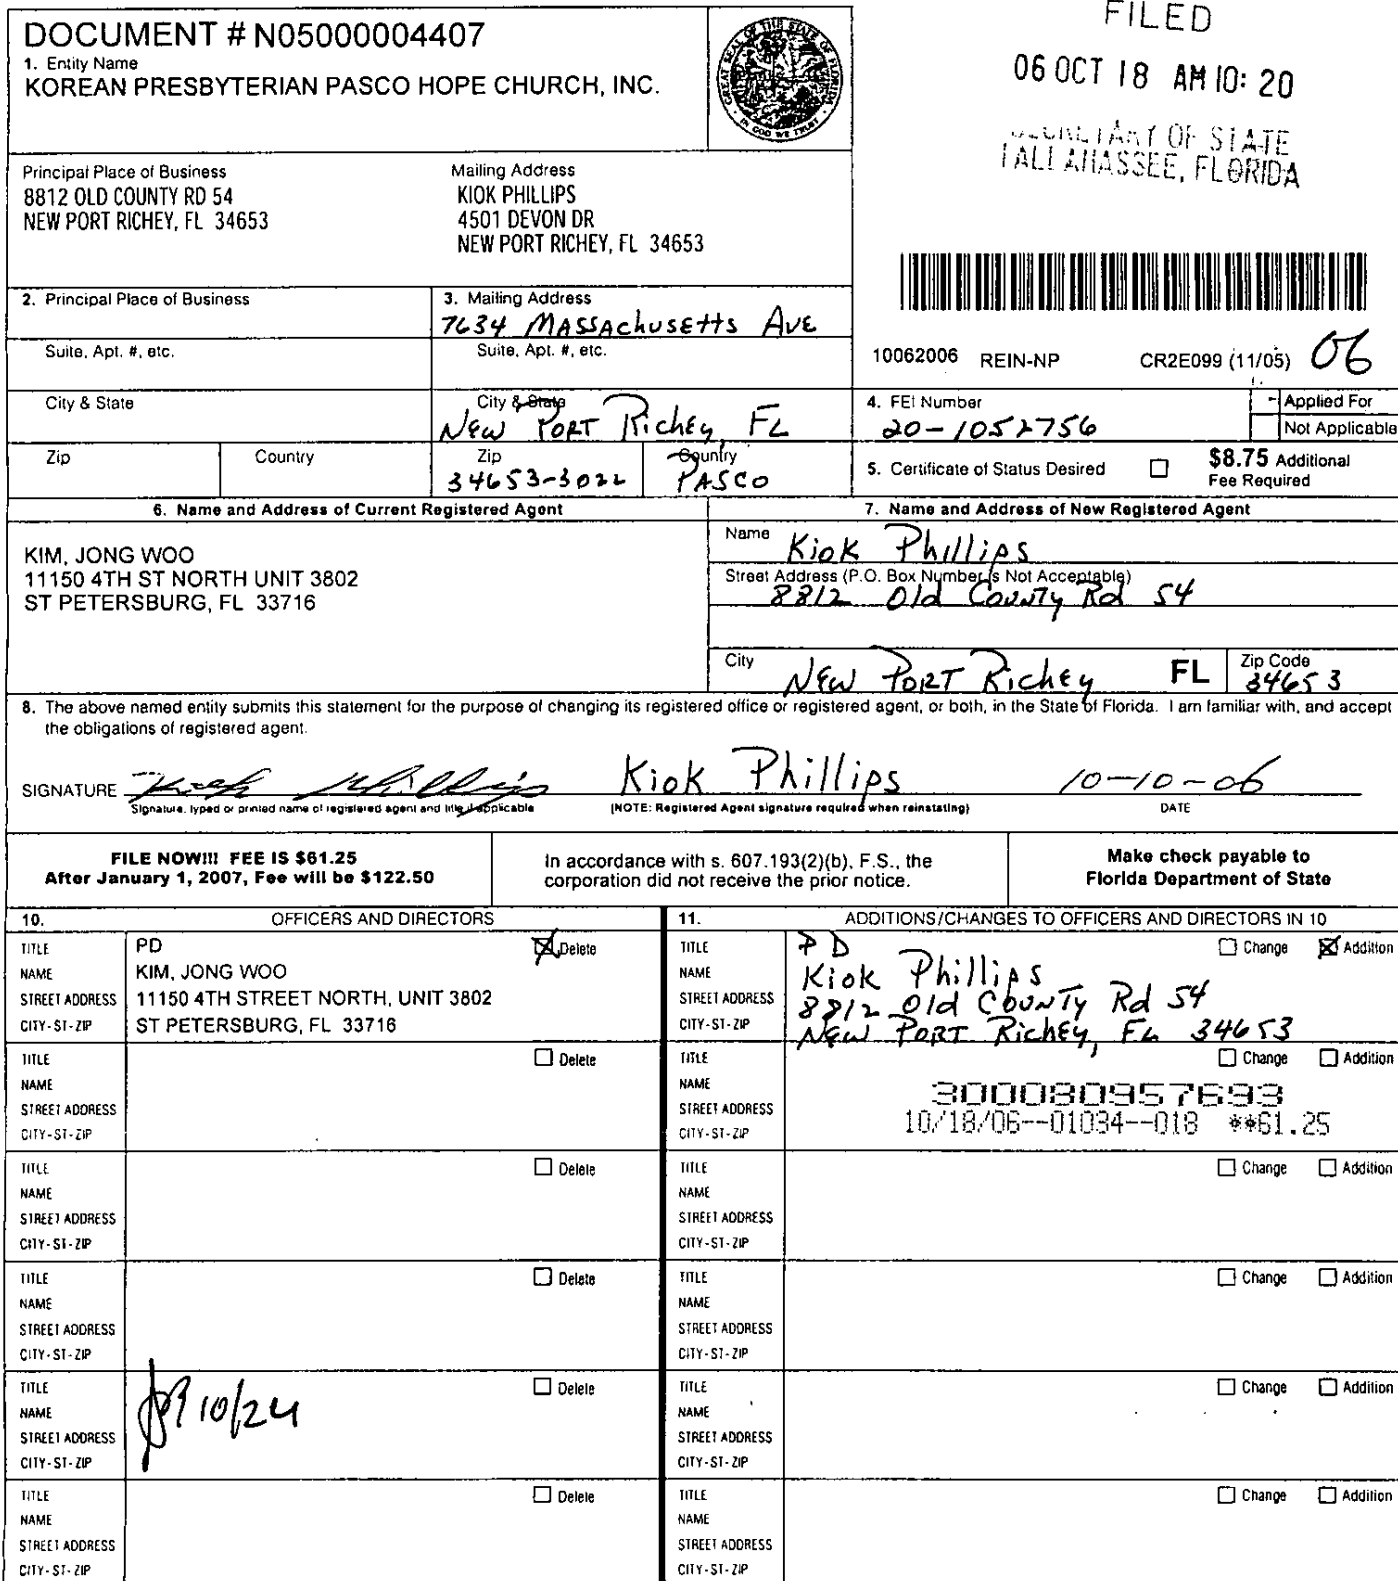 DOCUMENT # N05000004407
1. Entity Name
KOREAN PRESBYTERIAN PASCO HOPE CHURCH, INC.
GREAT SEAL OF THE STATE OF FLORIDA
IN GOD WE TRUST
FILED
06 OCT 18 AM 10: 20
SECRETARY OF STATE
TALLAHASSEE, FLORIDA
Principal Place of Business
8812 OLD COUNTY RD 54
NEW PORT RICHEY, FL 34653
Mailing Address
KIOK PHILLIPS
4501 DEVON DR
NEW PORT RICHEY, FL 34653
2. Principal Place of Business
3. Mailing Address
7634 Massachusetts Ave
Suite, Apt. #, etc.
Suite, Apt. #, etc.
10062006 REIN-NP CR2E099 (11/05) 06
City & State
City & State
New Port Richey, FL
4. FEI Number
20-1052756
Applied For
Not Applicable
Zip
Country
Zip
34653-3022
Country
Pasco
5. Certificate of Status Desired
$8.75 Additional
Fee Required
6. Name and Address of Current Registered Agent
KIM, JONG WOO
11150 4TH ST NORTH UNIT 3802
ST PETERSBURG, FL 33716
7. Name and Address of New Registered Agent
Name Kiok Phillips
Street Address (P.O. Box Number is Not Acceptable)
8812 Old County Rd 54
City New Port Richey FL Zip Code 34653
8. The above named entity submits this statement for the purpose of changing its registered office or registered agent, or both, in the State of Florida. I am familiar with, and accept
the obligations of registered agent.
SIGNATURE Kiok Phillips Kiok Phillips 10-10-06
Signature, typed or printed name of registered agent and title if applicable (NOTE: Registered Agent signature required when reinstating) DATE
FILE NOW!!! FEE IS $61.25
After January 1, 2007, Fee will be $122.50
In accordance with s. 607.193(2)(b), F.S., the
corporation did not receive the prior notice.
Make check payable to
Florida Department of State
10. OFFICERS AND DIRECTORS
TITLE PD Delete
NAME KIM, JONG WOO
STREET ADDRESS 11150 4TH STREET NORTH, UNIT 3802
CITY-ST-ZIP ST PETERSBURG, FL 33716
TITLE Delete
NAME
STREET ADDRESS
CITY-ST-ZIP
TITLE Delete
NAME
STREET ADDRESS
CITY-ST-ZIP
TITLE Delete
NAME
STREET ADDRESS
CITY-ST-ZIP
TITLE Delete
NAME 10/24
STREET ADDRESS
CITY-ST-ZIP
TITLE Delete
NAME
STREET ADDRESS
CITY-ST-ZIP
11. ADDITIONS/CHANGES TO OFFICERS AND DIRECTORS IN 10
TITLE PD Change Addition
NAME Kiok Phillips
STREET ADDRESS 8812 Old County Rd 54
CITY-ST-ZIP New Port Richey, FL 34653
TITLE Change Addition
NAME 300080957693
STREET ADDRESS 10/18/06--01034--018 **61.25
CITY-ST-ZIP
TITLE Change Addition
NAME
STREET ADDRESS
CITY-ST-ZIP
TITLE Change Addition
NAME
STREET ADDRESS
CITY-ST-ZIP
TITLE Change Addition
NAME
STREET ADDRESS
CITY-ST-ZIP
TITLE Change Addition
NAME
STREET ADDRESS
CITY-ST-ZIP